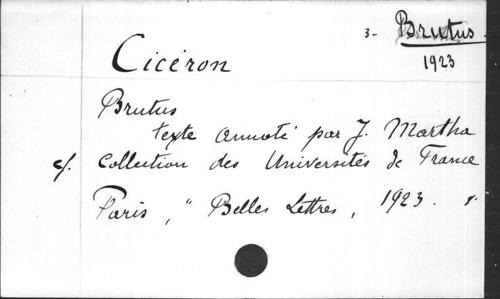 3- Brutus.
1923
Cicéron
Brutus
texte annoté par J. Martha
cf. Collection des Universités de France
Paris, " Belles Lettres, 1923.